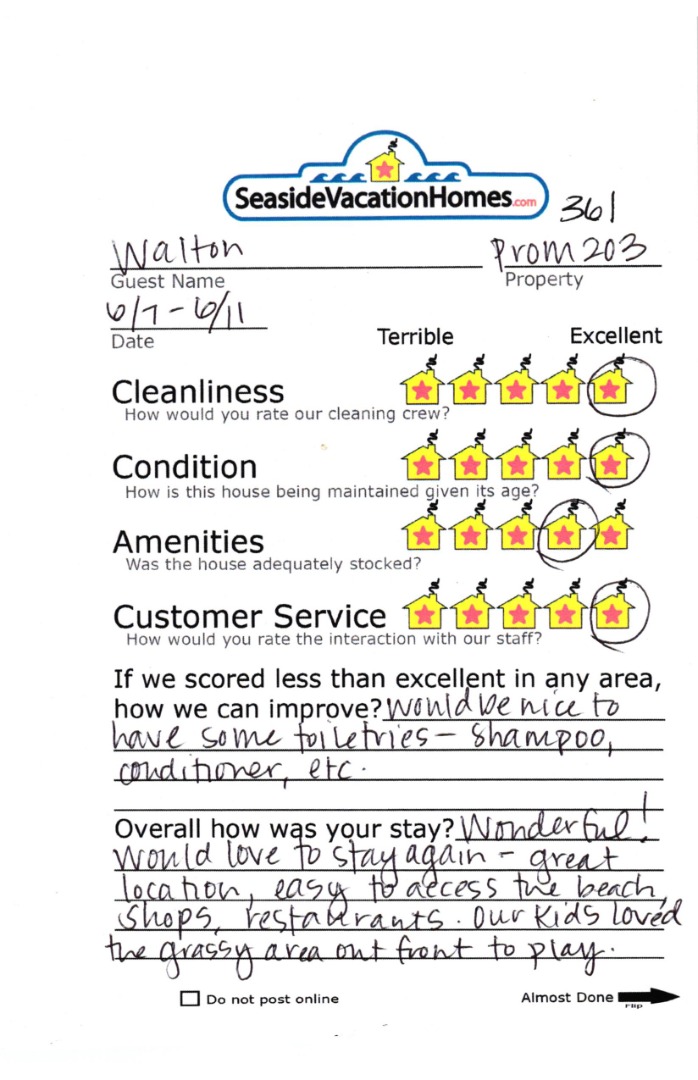 SeasideVacationHomes.com
361
Walton Prom 203
Guest Name Property
6/7 - 6/11
Date
Terrible Excellent
Cleanliness
How would you rate our cleaning crew?
Condition
How is this house being maintained given its age?
Amenities
Was the house adequately stocked?
Customer Service
How would you rate the interaction with our staff?
If we scored less than excellent in any area,
how we can improve? Would be nice to
have some toiletries - shampoo,
conditioner, etc.
Overall how was your stay? Wonderful!
Would love to stay again - great
location, easy to access the beach,
shops, restaurants. Our kids loved
the grassy area out front to play.
Do not post online Almost Done
Flip